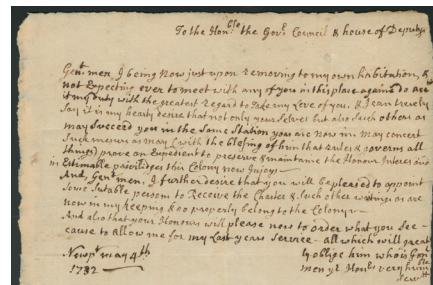 To the Hon:ble the Gov:r Council & house of Deputys
Gen:t men, I being Now just upon removing to my own habitation, &
not Expecting ever to meet with any of you in this place again do
it my duty with the greatest Regard to take my Leve of you, & I can truely
Say it is my hearty desire that not only your Selves but also Such others as
may Succeed you in the Same Station you are now in may concert
Such mesures as may (with the blessing of him that Rules & governs all
things) prove an Expedient to preserve & maintaine the Honour Interes and
in Estimable priviledges this Colony now Injoys—
And, Gen:t men, I further desire that you will be pleased to appoint
Some Sutable person to Receive the Charter & Such other writings as are
now in my Keeping & do properly belong to the Colony—
And also that your Honours will please now to order what you See
cause to Allow me for my Last years Service— All which will great
Newp:t may 4th ly oblige him who is Gen:t
1732 men y:r Hon:rs very hum:ble
Serv:tt